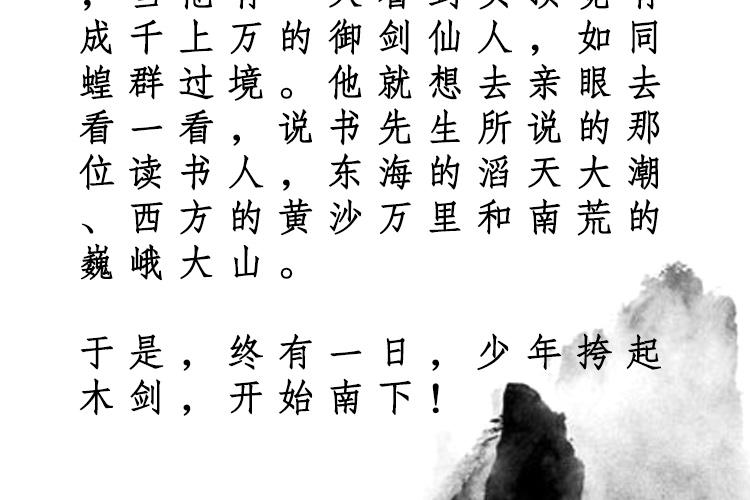 成千上万的御剑仙人，如同
蝗群过境。他就想去亲眼去
看一看，说书先生所说的那
位读书人，东海的滔天大潮
、西方的黄沙万里和南荒的
巍峨大山。
于是，终有一日，少年挎起
木剑，开始南下！